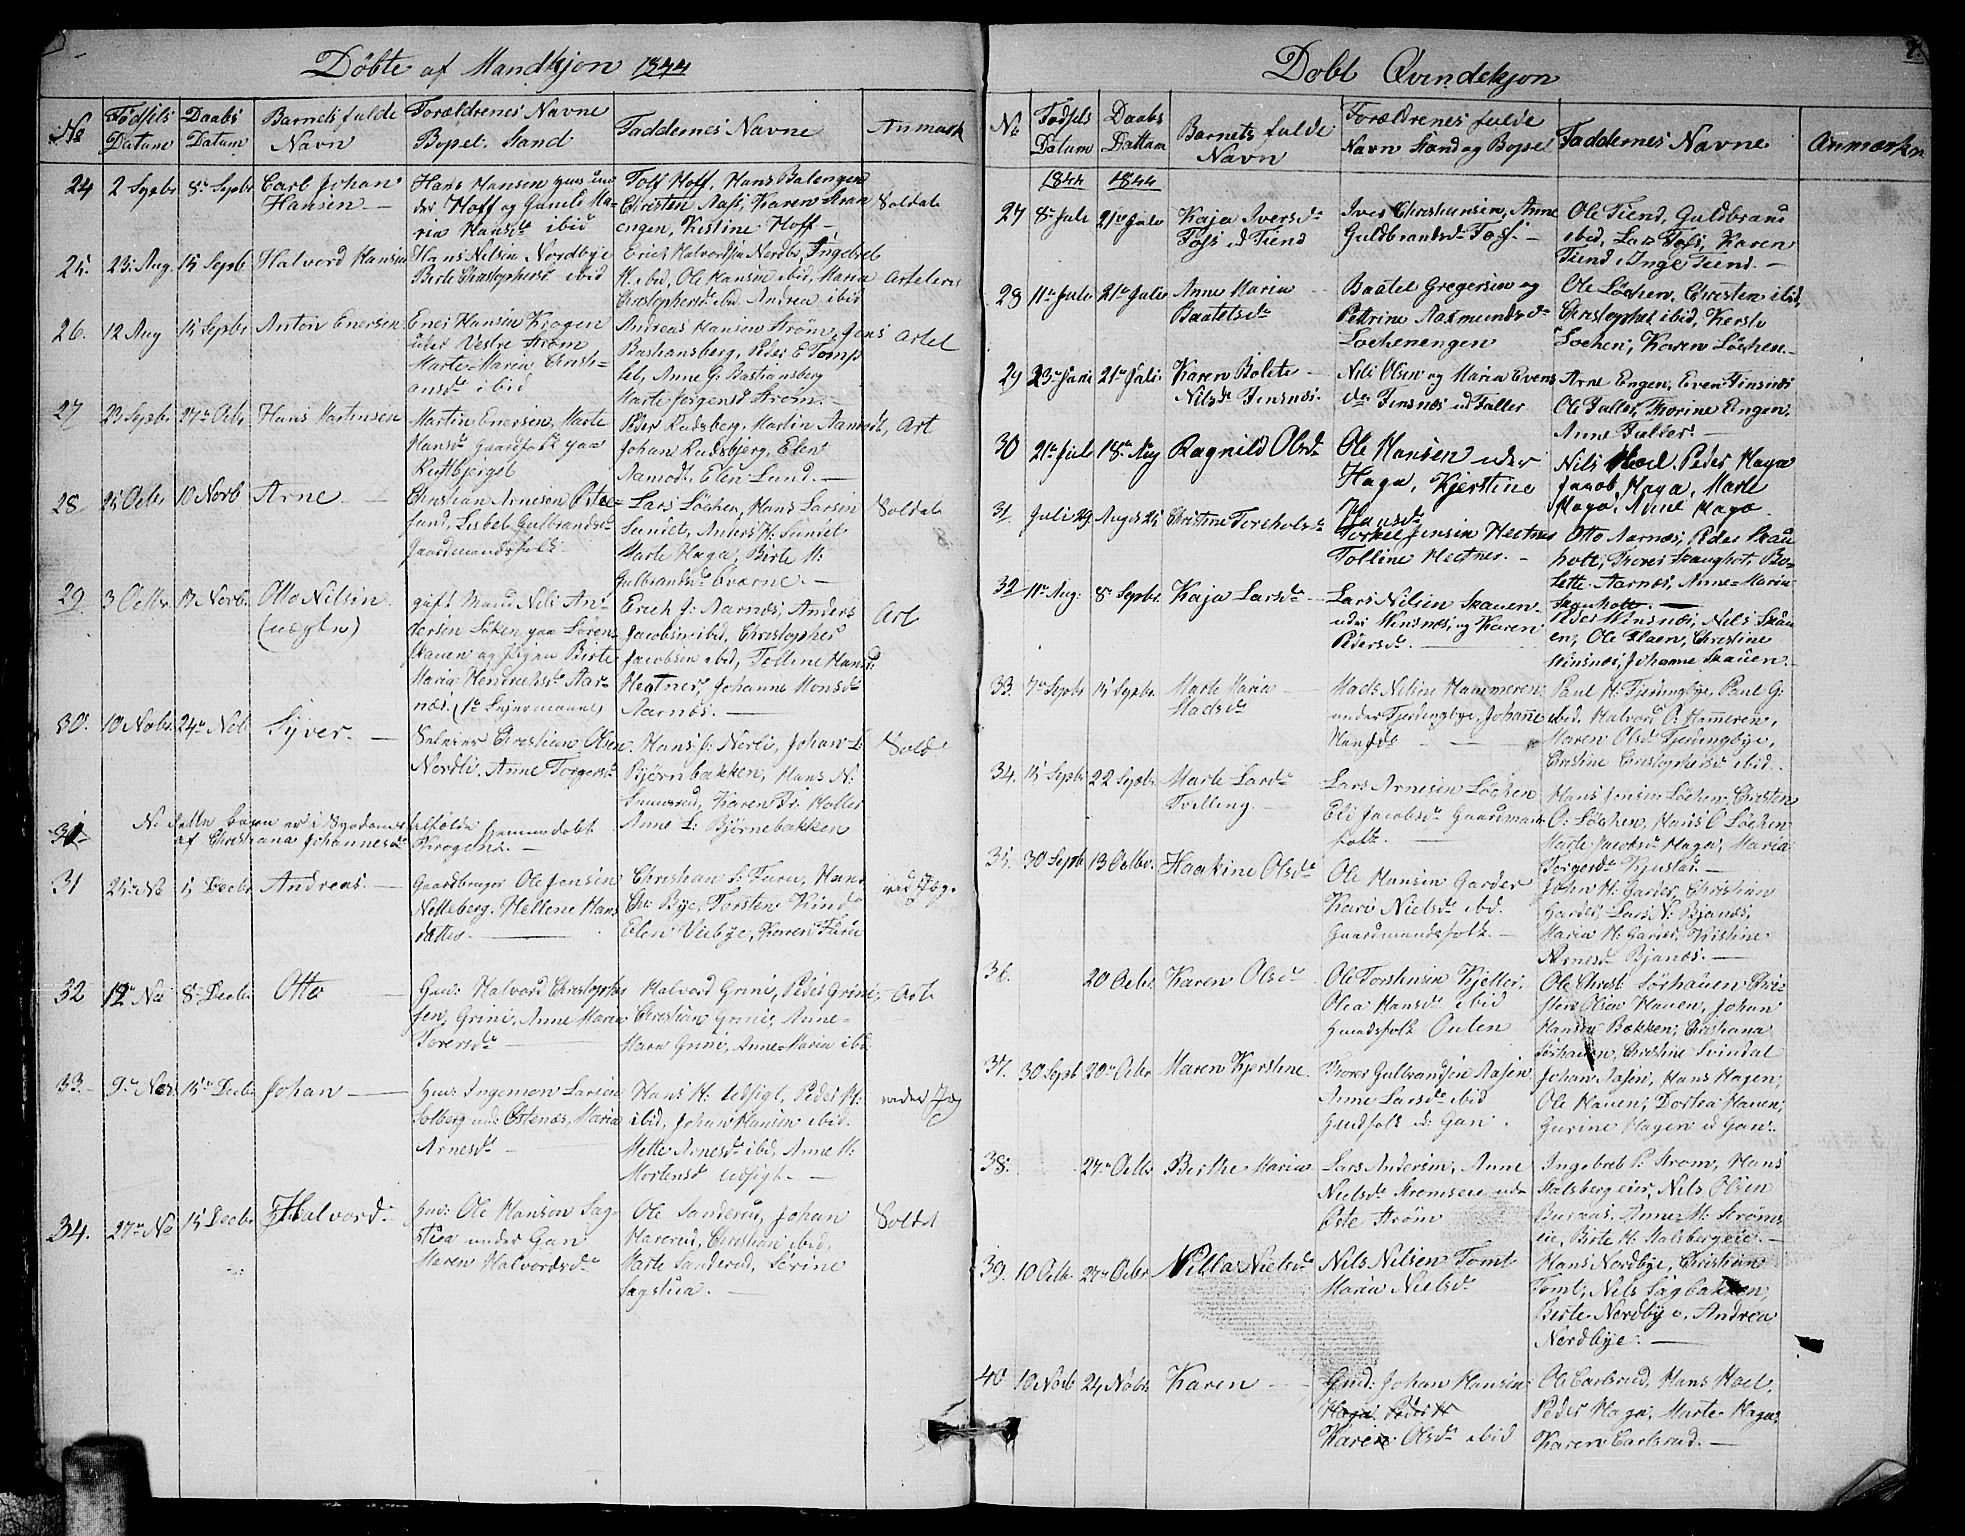 Døbte af Mandkjøn 1844
No Fødsels Datum Daabs Datum Barnets fulde Navn Forældrenes Navne Bopel. Stand Faddernes Navne Anmærk
24 2 Sepbr 8 Sepbr Carl Johan Hansen
Hans Hansen
der Hoff og Gunild Ma-
ria Hansdr ibid
Tolf Hoff, Hans Balengen
Christen Aas, Karen
engen, Kistine Hoff
Soldat
25. 23 Aug 15 Sepb Halvord Hansen
Hans Nilsen Nordbye
Berte Christophersd ibid
Erich Halvordsen Nordb, Ingebreb
H. ibid, Ole Hansen ibid, Maria
Christophersdr ibid Andrea ibid
26. 12 Aug 15 Sepbr Anton Enersen
Ener Hansen Krogen
under Vestre Strøm
Marte Maria Christi-
ansdr ibid
Andreas Hansen Strøm,
Bastiansberg, Peder E Tomp
Anne G: Bastiansberg
Marte Jørgensd Strøm.
Artel
27 23 Sepbr 27 Octr Hans Martinsen
Martin Enersen, Marte
Hansdr Gaardfolk paa
Peder Rudsberg, Martin Aamodt,
Johan Rudsbjerg, Elen
Aamodt, Elen Lund.
Art
28 25 Octbr 10 Novb Arne
Christian Arnesen
Lisbet Gulbrandsdr
Gaardmandsfolk
Lars Løchen, Hans Larsen
Sundet, Anders H: Sundet
Marte Haga, Birte H:
Gulbrandsdr Overne.
Soldat
29 3 Octbr 17 Novb. Otto Nilsen
(uægte)
gift Mand Nils An-
dersen Løken paa Søren-
skauen og Pigen Birte
Maria Hendriksdr Aar-
næs.
Erich J: Aarnæs, Anders
Jacobsen ibid, Christopher
Jacobsen ibid, Tolline Hansd:
Hegtner, Johanne Monsdr
Aarnæs.
Art
30. 10 Novbr 24 Nob Syver.
Christian Olsen
Nordli, Anne Torgersdr
Hans J: Nerli, Johan L:
Bjørnbakken, Hans N:
Karen Tr: Moller
Anne L: Bjørnebakken
Sold
31
N. dette barn er i Nødsm
hjemmedøbt
af Christiana Johannesdr
Krogen.
31 25 No 15 Decbr Andreas.
Gaardbruger Ole Jensen
Netteberg. Hellene Hans
datter
Christian S: Furu, Hans
Chr: Bye, Torsten Kind
Elen Viebye, Karen Furu
32 12 No 8 Decbr Otto
Halvord Christophe
sen, Grini, Anne Maria
Toresdr
Halvord Grini, Peder Grini,
Christian Grini, Anne-
Mara Grini, Anne Maria ibd.
Art
33. 9 Nov 15 Decbr Johan
Huu: Ingemon Larsen
Solberg und: Østenæs, Maria
Arnesdr
Hans H: Udsigt, Peder H:
ibid, Johan Hansen ibid.
Mette Arnesdr ibd, Anne H:
Mortensd Udsigt.
34. 27 No 15 Decbr Halvord
Huu: Ole Hansen Sag-
stua under Gan
Maren Halvordsdr
Ole Sanderud, Johan
Harerud, Christian ibid,
Marte Sanderud, Serine
Sagstua.
Soldt
Døbt Qvindekjøn
No Fødsels Datum Daabs Dattum Barnets fulde Navn Forældrenes fulde Navn Stand og Bopel Faddernes Navne Anmærkn
1844 1844
27 8 Juli 21 Juli Kaja Iversdr
Foss Tiend
Iver Christiansen, Anne
Guldbrandsdr Foss.
Ole Tiend, Guldbrand
ibid, Lars Foss, Karen
Tiend Inge Tiend.
28 11 Juli 21 Juli Anne Maria
Baatelsdr
Baatel Gregersen og
Petrine Rasmundsdr
Lochenengen
Ole Løchen, Christen ibid,
Christopher ibid, Kersti
Lochen, Karen Løchen.
29 23 Juni 21 Juli Karen Bolette
Nilsdr Finsnæs.
Nils Olsen og Maria Evens
dr Finsnæs ud Faller
Arne Engen, Even Finsnæs
Ole Faller, Thorine Engen,
Anne Faller.
30 21 Juli 18 Aug Ragnild Olsdr
Ole Hansen under
Haga, Kjerstine
Hansdr
Nils Hoel, Peder Haga
Jacob Haga, Marte
Haga, Anne Haga.
31. Juli 29 Augst 25 Christine Torchelsdr
Torkel Jensen Hectner
Tolline Hectner.
Otto Aarnæs, Peder Skau
holt, Thorer Skaugholt, Bo-
lette Aarnæs, Anne Maria
Skauholt.
32 11 Aug: 8 Sepbr. Kaja Larsdr
Lars Nilsen Skauen-
under Winsnæs, og Karen
Pedersdr
Peder Winsnæs, Nils Skau
en, Ole Haen, Christine
Winsnæs, Johanne Skauen.
33. 7 Septb 15 Sepbr. Marte Maria
Madsdr
Mads Nilsen Hammeren
under Fjerdingbye, Johanne
Hansdr
Paul H: Fjerdingbye, Paul G:
ibid. Halvord O: Hammeren,
Maren Olsdr Fjerdingbye,
Cristine Christophersdr ibid.
34. 15 Sepbr 22 Sepbr. Marte Larsdr
Tvilling.
Lars Arnesen Løchen
Eli Jacobsdr Gaardman
folk.
Hans Jensen Løchen, Christen
O: Løchen, Hans O Løchen
Marte Jacobsdr Haga, Maria
Torgersdr Kjustad.
35. 30 Septb 13 Octbr. Haakine Olsdr
Ole Hansen Garder
Kari Nielsdr ibd.
Gaardmandsfolk.
John H: Garder, Christian
Garder, Lars N: Bjanæs,
Maria H: Garder, Kistine
Arnesdr Bjanæs.
36. 20 Octbr Karen Olsdr
Ole Torstensen Kjeller,
Olea Hansdr ibid
Huusfolk Outen
Ole Christ Sørhauen Chri-
sten Olsen Hauen, Johan
Hansen Bækken, Christiana
Sørhauen, Christine Svindal
37. 30 Septb 20 Octbr Maren Kjerstine.
Thorer Gulbrandsen Aasen
Anne Larsdr ibid
Huusfolk u: Gan.
Johan Aasen, Hans Hagen,
Ole Hauen, Dortea Hauen,
Gurine Hagen u Gan.
38. 27 Octbr Berthe Maria
Lars Andersen, Anne
Nielsdr Strømseie und
Øste Strøm
Ingebreb P: Strøm, Hans
Stalsberg eier, Nils Olsen
Buraas, Anne M: Strøms
eie, Birte H: Stalsbergeie.
39. 10 Octb 27 Octbr Nilla Nielsdr
Nils Nilsen Tomt
Maria Nielsdr
Hans Nordbye, Christian
Tomt, Nils Sagbakken,
Berte Nordbye, Andrea
Nordbye.
40 10 Novb 24 Nobr. Karen
Gmd: Johan Hansen
Haga Peder H
Karen Olsdr ibid
Ole Carlsrud, Hans Hoel,
Peder Haga, Marte Haga,
Karen Carlsrud.